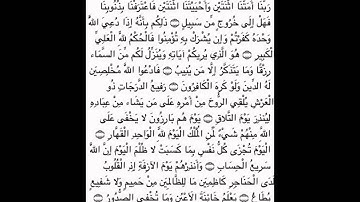 رَبَّنَا أَمَتَّنَا اثْنَتَيْنِ وَأَحْيَيْتَنَا اثْنَتَيْنِ فَاعْتَرَفْنَا بِذُنُوبِنَا
فَهَلْ إِلَى خُرُوجٍ مِّن سَبِيلٍ ۝ ذَلِكُم بِأَنَّهُ إِذَا دُعِيَ اللَّهُ
وَحْدَهُ كَفَرْتُمْ وَإِن يُشْرَكْ بِهِ تُؤْمِنُوا فَالْحُكْمُ لِلَّهِ الْعَلِيِّ
الْكَبِيرِ ۝ هُوَ الَّذِي يُرِيكُمْ آيَاتِهِ وَيُنَزِّلُ لَكُم مِّنَ السَّمَاءِ
رِزْقًا وَمَا يَتَذَكَّرُ إِلَّا مَن يُنِيبُ ۝ فَادْعُوا اللَّهَ مُخْلِصِينَ
لَهُ الدِّينَ وَلَوْ كَرِهَ الْكَافِرُونَ ۝ رَفِيعُ الدَّرَجَاتِ ذُو
الْعَرْشِ يُلْقِي الرُّوحَ مِنْ أَمْرِهِ عَلَى مَن يَشَاءُ مِنْ عِبَادِهِ
لِيُنذِرَ يَوْمَ التَّلَاقِ ۝ يَوْمَ هُم بَارِزُونَ لَا يَخْفَى عَلَى
اللَّهِ مِنْهُمْ شَيْءٌ لِّمَنِ الْمُلْكُ الْيَوْمَ لِلَّهِ الْوَاحِدِ الْقَهَّارِ ۝
الْيَوْمَ تُجْزَى كُلُّ نَفْسٍ بِمَا كَسَبَتْ لَا ظُلْمَ الْيَوْمَ إِنَّ اللَّهَ
سَرِيعُ الْحِسَابِ ۝ وَأَنذِرْهُمْ يَوْمَ الْآزِفَةِ إِذِ الْقُلُوبُ
لَدَى الْحَنَاجِرِ كَاظِمِينَ مَا لِلظَّالِمِينَ مِنْ حَمِيمٍ وَلَا شَفِيعٍ
يُطَاعُ ۝ يَعْلَمُ خَائِنَةَ الْأَعْيُنِ وَمَا تُخْفِي الصُّدُورُ ۝